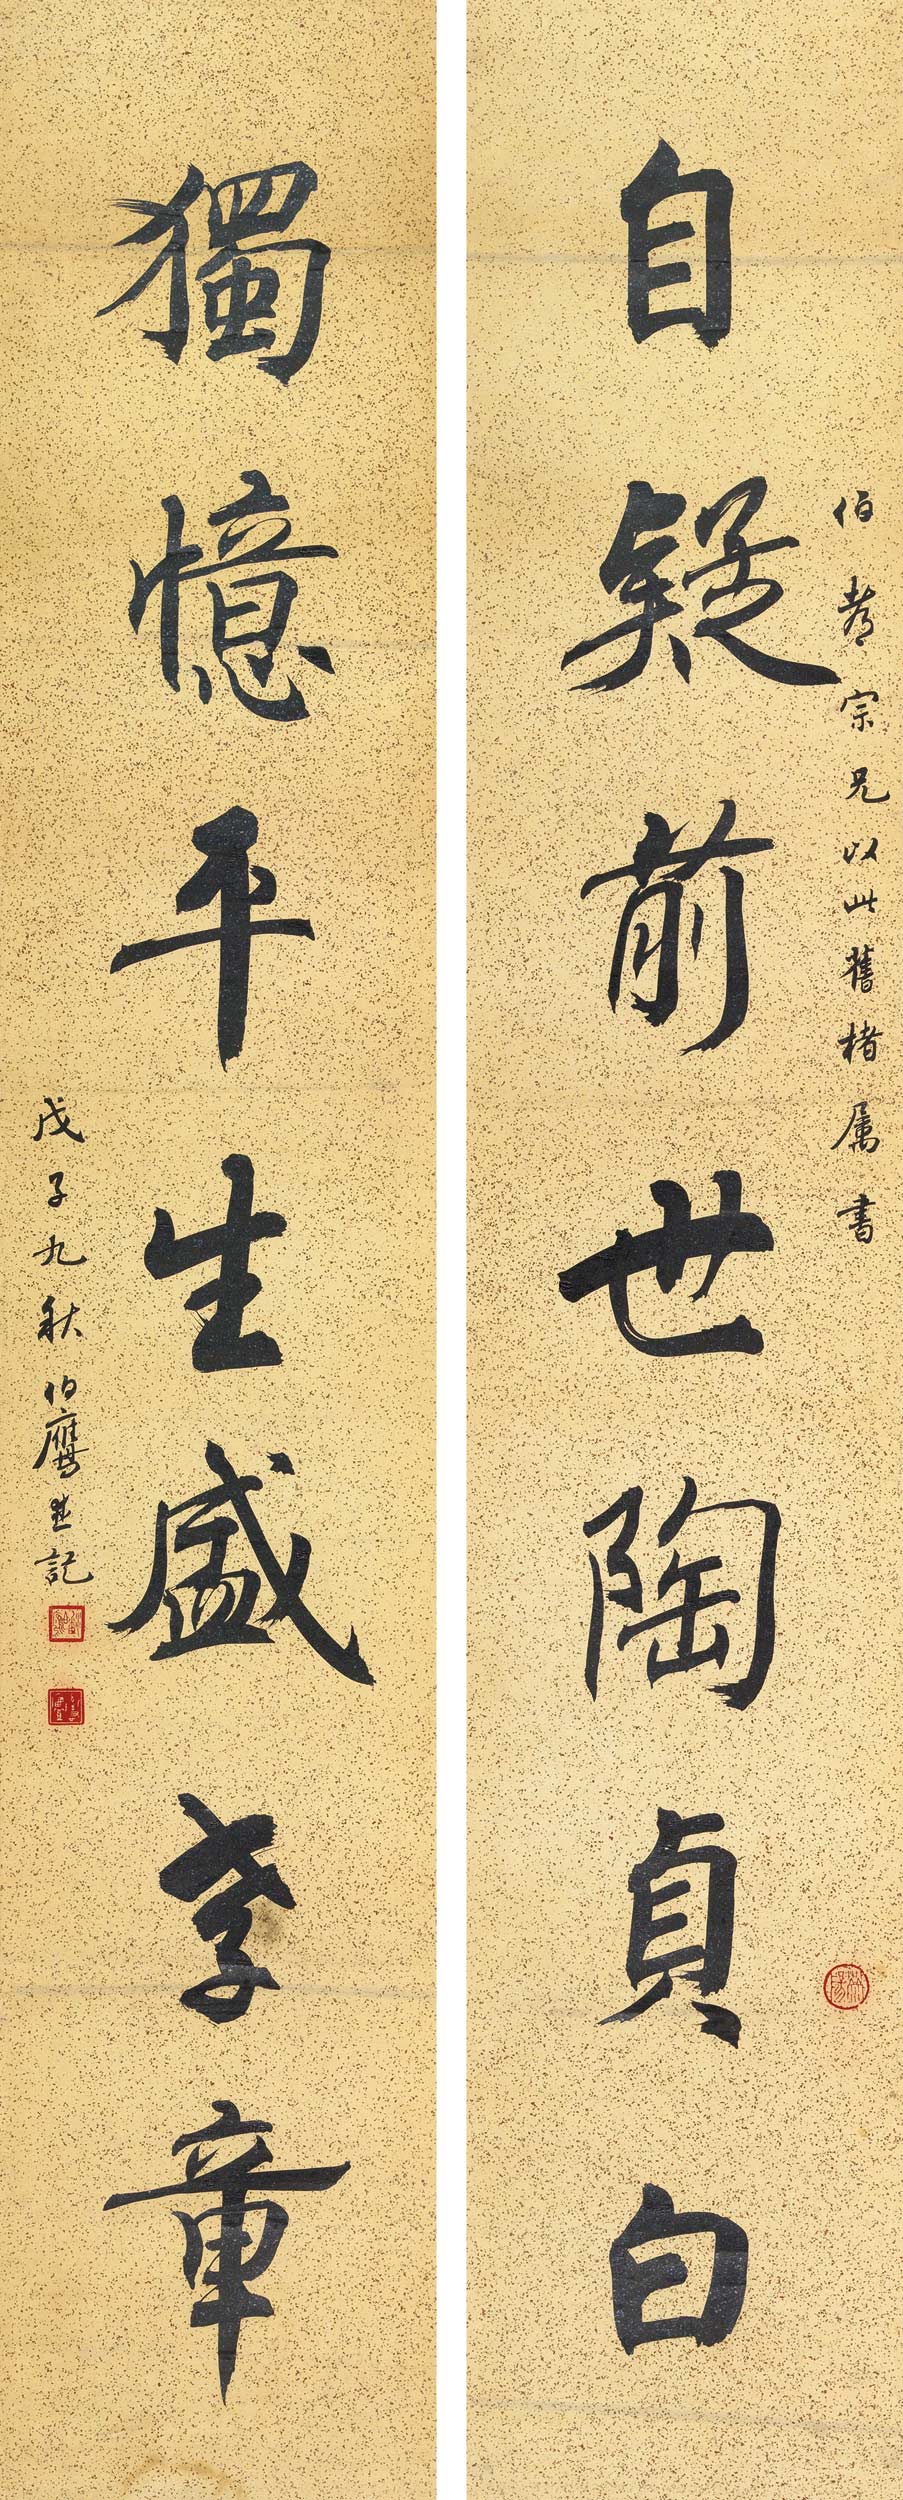 自疑前世陶貞白
伯耇宗兄以此舊楮属書
獨憶平生盛孝章
戊子九秋伯鷹並記